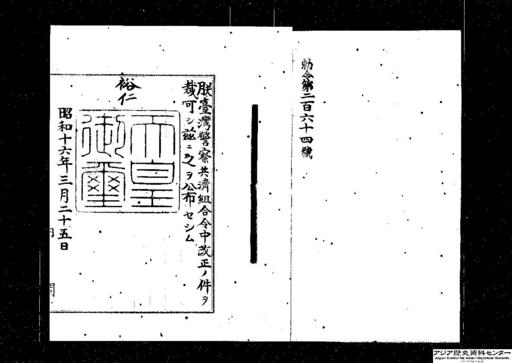 勅令第二百六十四號
朕臺灣警察共濟組合令中改正ノ件ヲ
裁可シ茲ニ之ヲ公布セシム
裕仁
天皇
御璽
昭和十六年三月二十五日
アジア歴史資料センター
Japan Center for Asian Historical Records